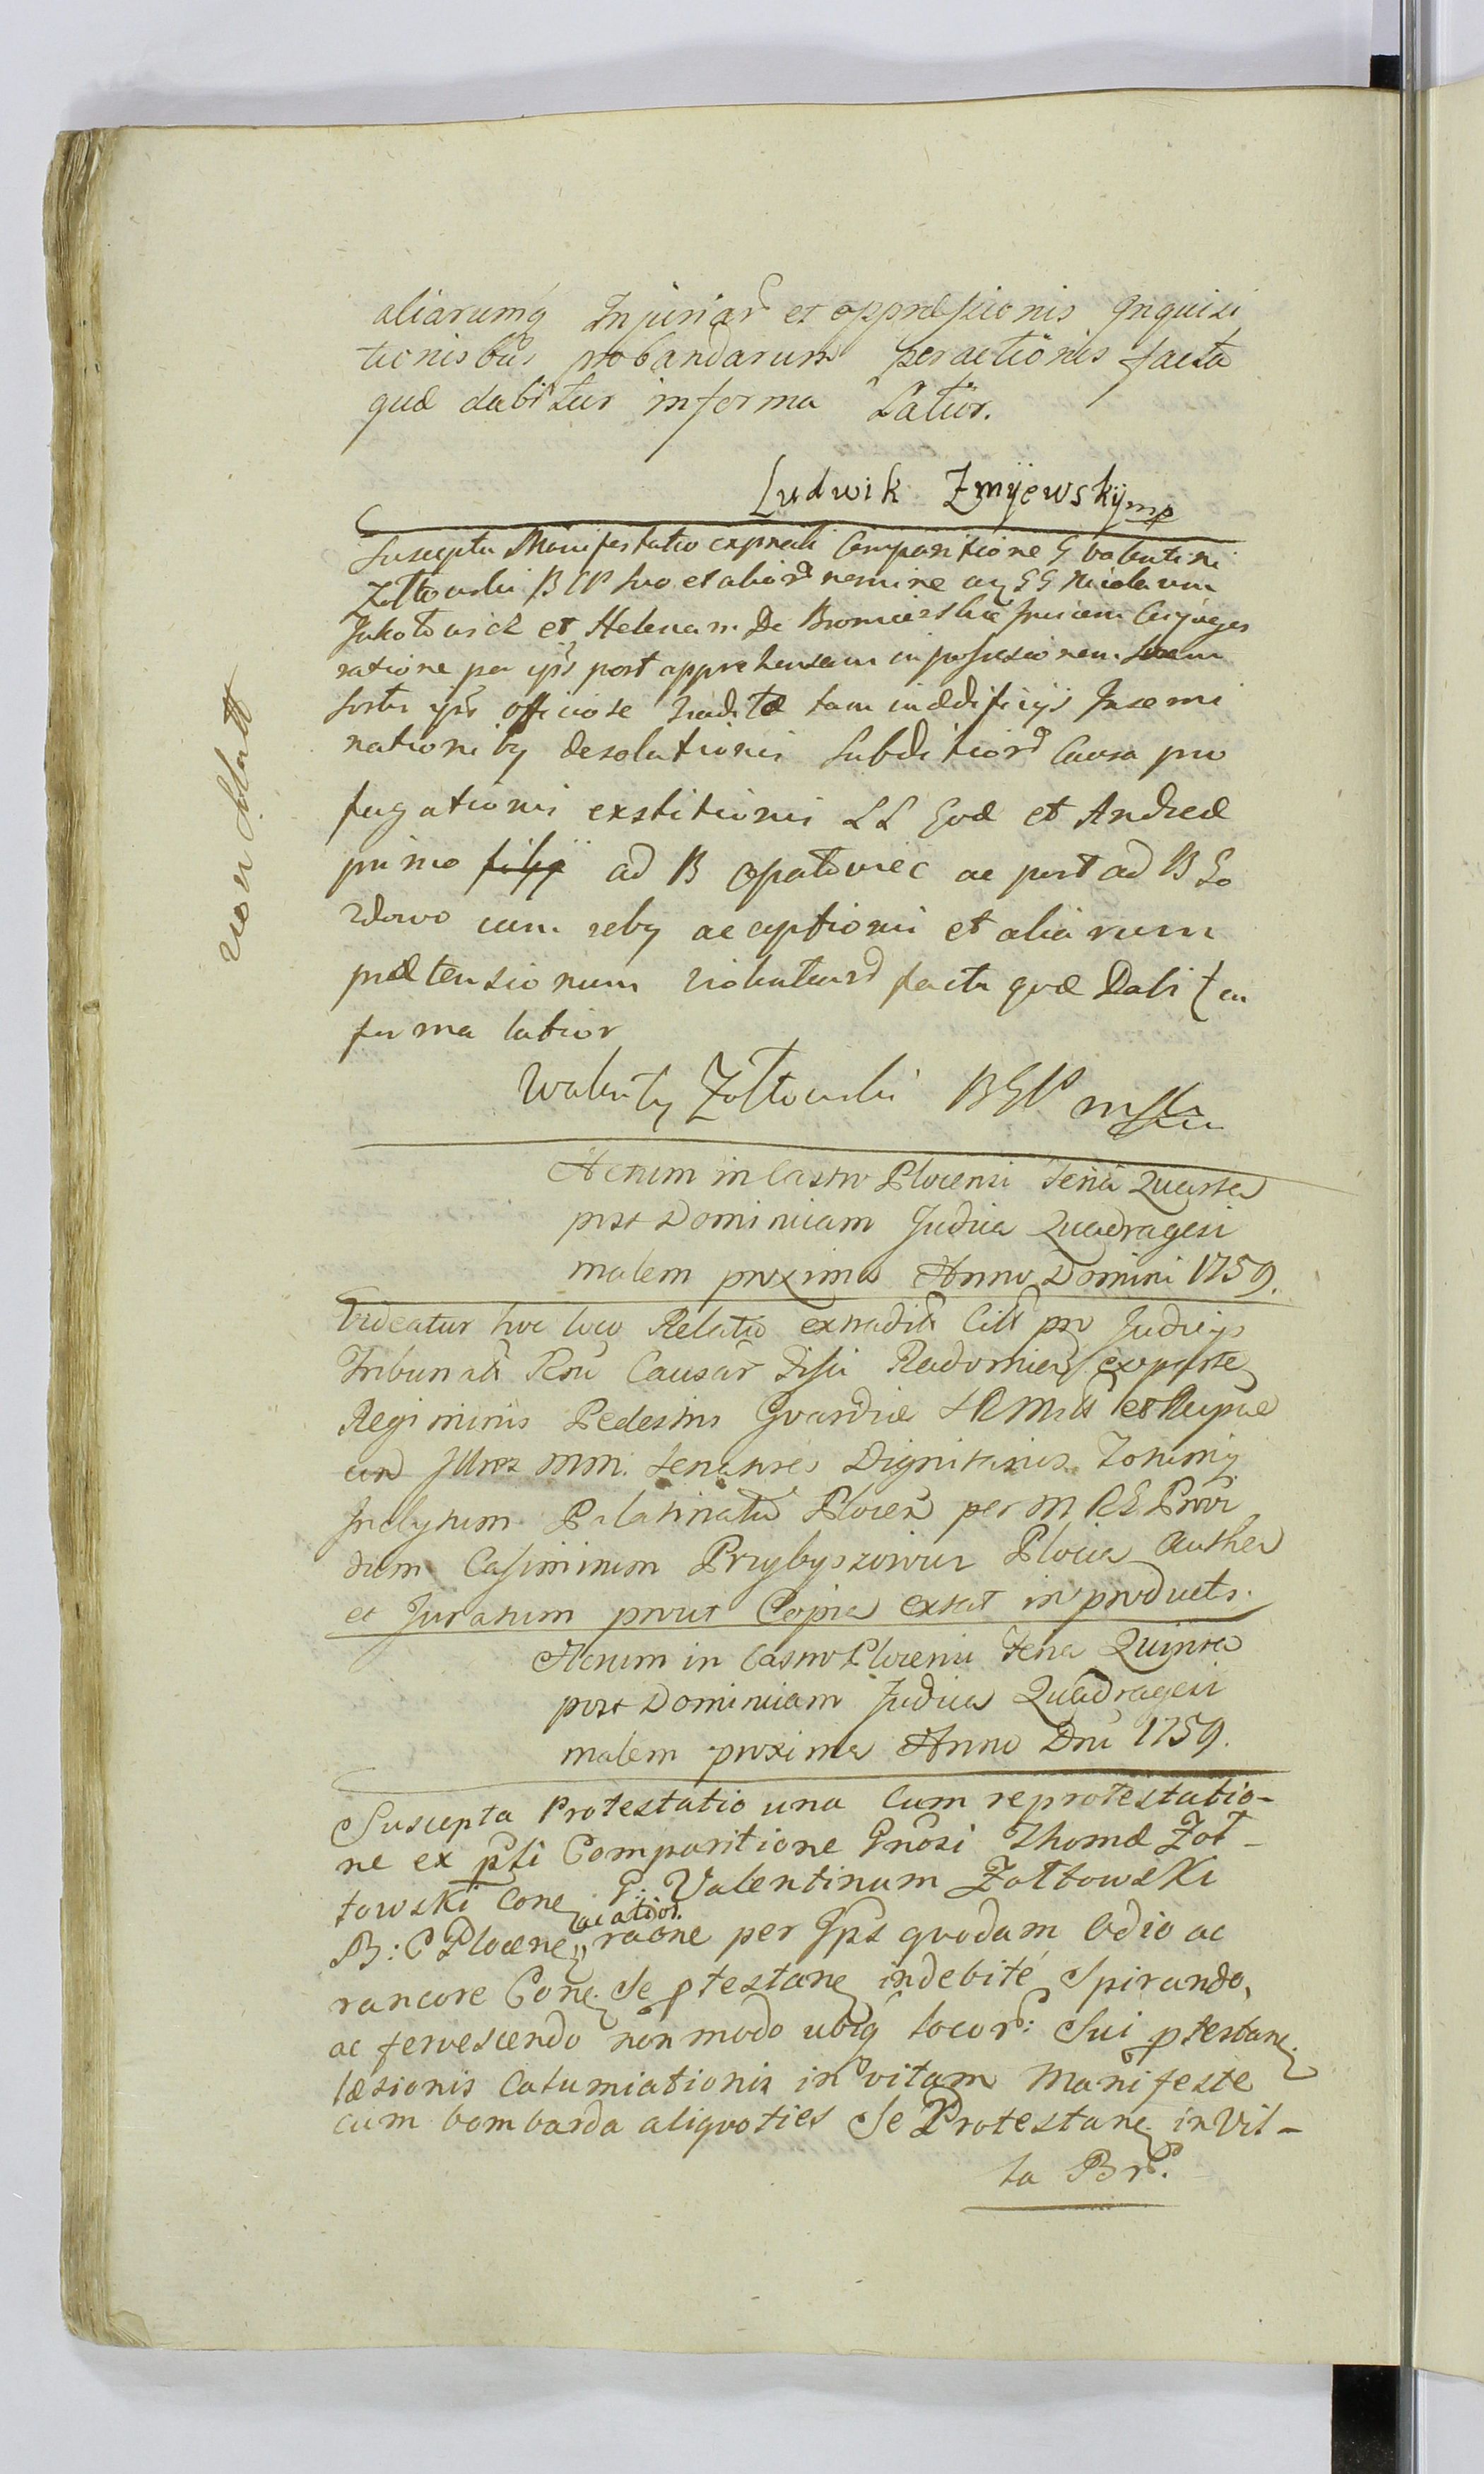 aliarumq Injuriar et oppressionis Inquisi
tionisbus probandarum peractionis facta
quæ dabitur in forma Latior.
Ludwik Zmyewsky mp
Suscepta Manifestatio ex pnali Comparitione G Valentini
Zołtowski B C P suo et alior nomine aq GG Nicolaum
et Helenam De Bromierskie Conjuges
ratione per ips post apprehensam in possessionem
sortis ips officiose traditæ tam in ædificijs Insemi
nationibq desolationis Subditior Causa pro
fugationis exstitionis LL Evæ et Andreæ
primo filij ad B Opatowiec ac post ad B Go
zdowo cum rebq acceptionis et aliarum
prætensionum violentiar facta quæ Dabit in
forma latior
non solutt
Walenty Zołtowski B G P mpria
Actum in Castro Plocensi Feria Quarta
post Dominicam Judica Quadragesi
malem proxima Anno Domini 1759.
Videatur hoc loco Relatio extradit Citt pro Judicijs
Tribunalis Rni Causar Fisci Radomien ex parte
Regiminis Pedestris Gvardiæ S R Mttis et Reipnæ
ad Illres MM. Senatores Dignitarios Totumq
Inclytum Palatinatu Plocen per M R E Provi
dum Casimirum Przybyszowicz Plocia Authen
et Juratum prout Copia extat in productis.
Actum in Castro Plocensi Feria Quinta
post Dominicam Judica Quadragesi
malem proxima Anno Dni 1759.
Suscepta Protestatio una Cum reprotestatio-
ne ex psti Comparitione Gnosi Thomæ Zoł-
towski Cone G: Valentinum Zołtowski
B: C Plocene ac alior. raone per Ips quodam Odio ac
rancore Cone Se ptestane indebité Spirando,
ac fervescendo non modo ubiq locor: Sui ptestane
læsionis Calumiationis in vitam Manifeste
cum bombarda aliquoties Se Protestane in Vil-
la Br.